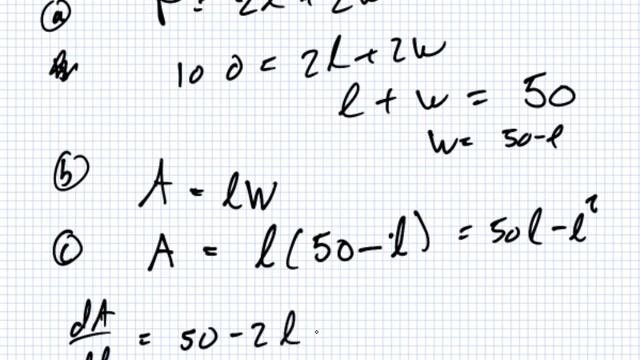 (a) P = 2l + 2w
100 = 2l + 2w
l + w = 50
w = 50-l
(b) A = lw
(c) A = l(50-l) = 50l-l²
dA/dl = 50-2l